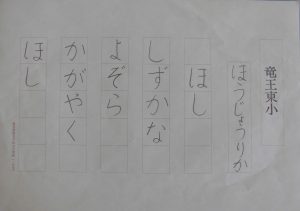 竜王東小
ほうじょうりか
ほし
しずかな
よぞら
かがやく
ほし